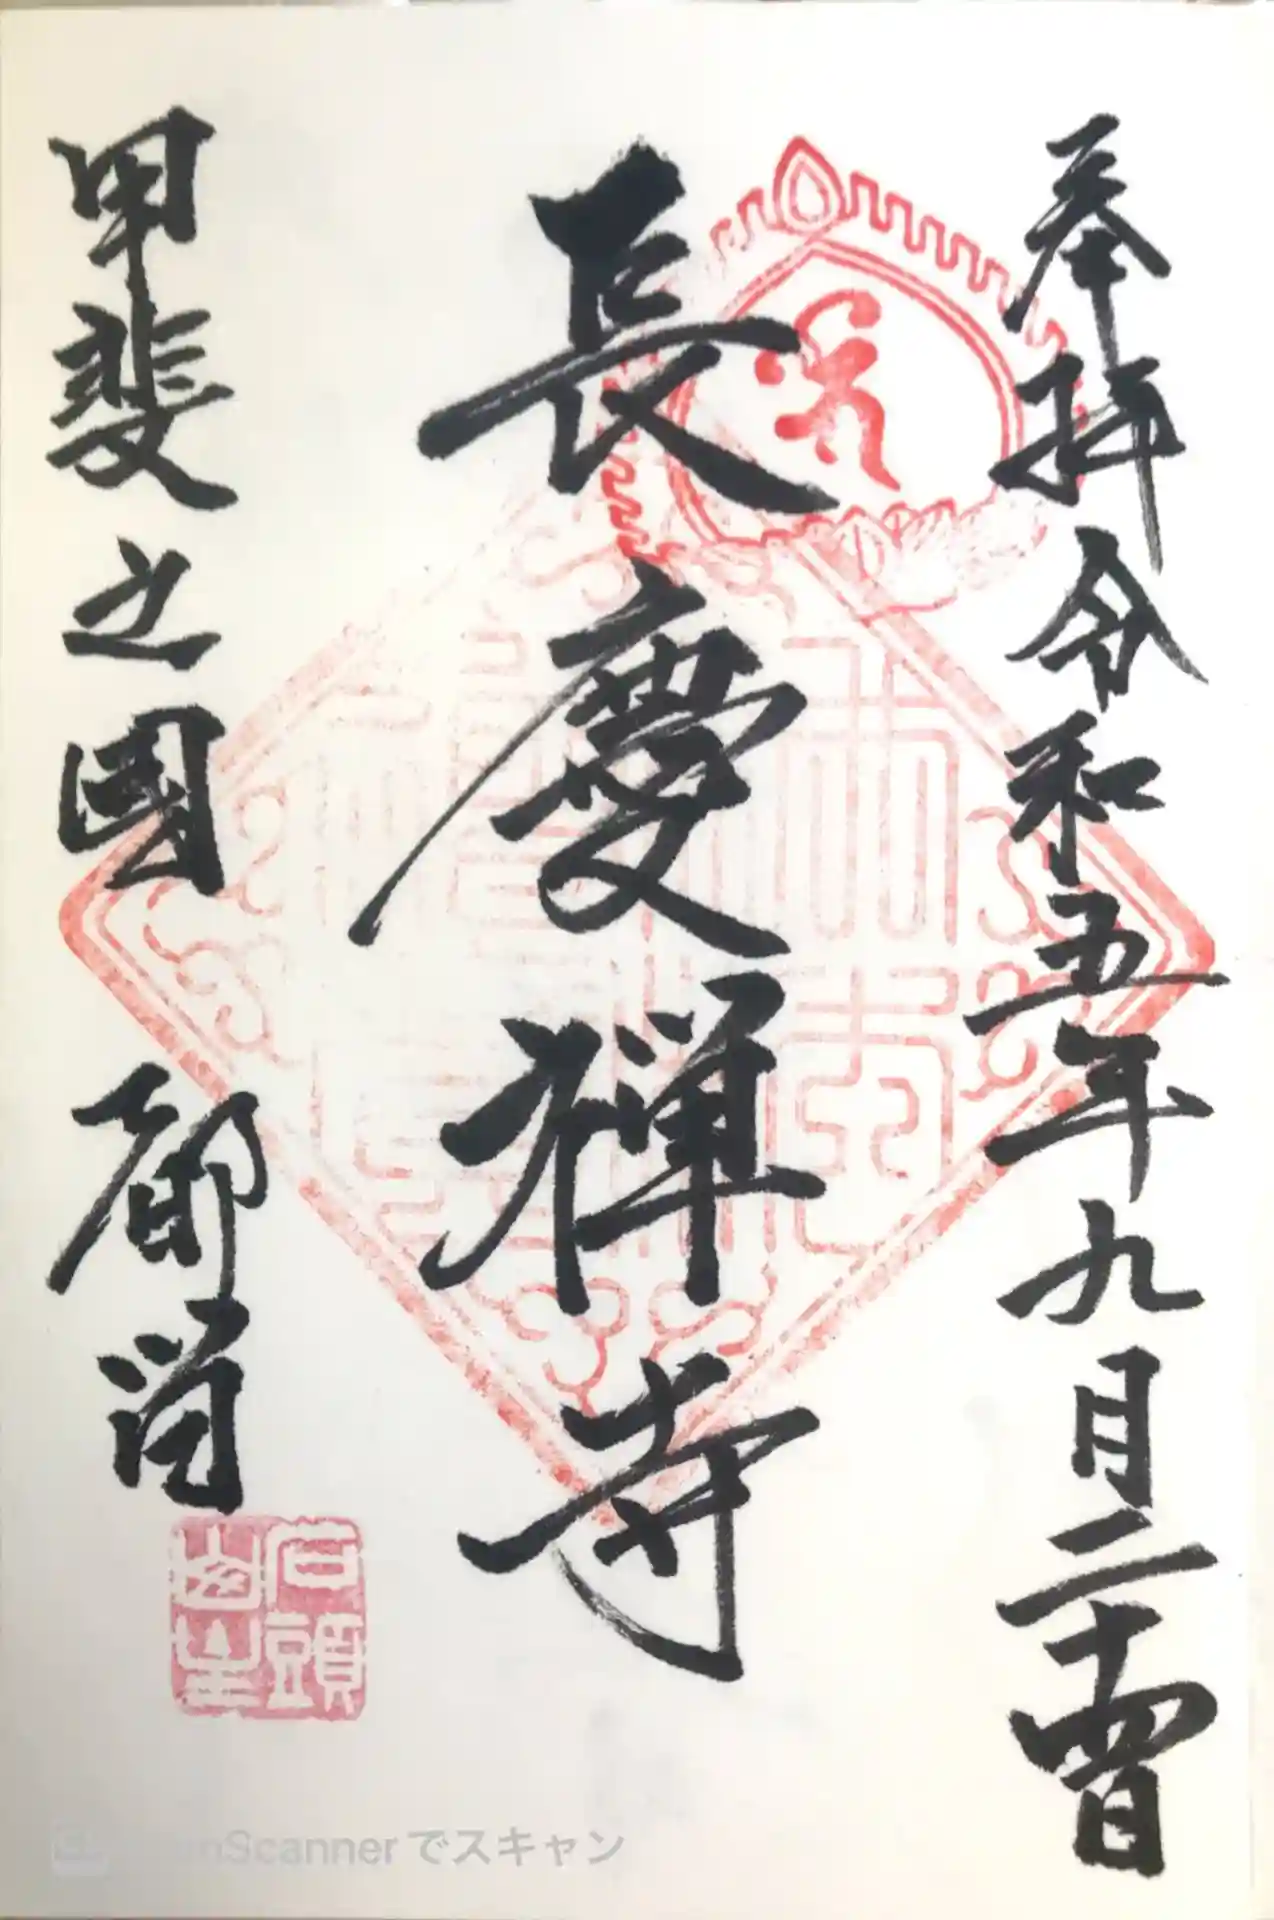 奉拝 令和五年九月二十四日
長慶禅寺
甲斐之國 都留
石頭
Scanner でスキャン